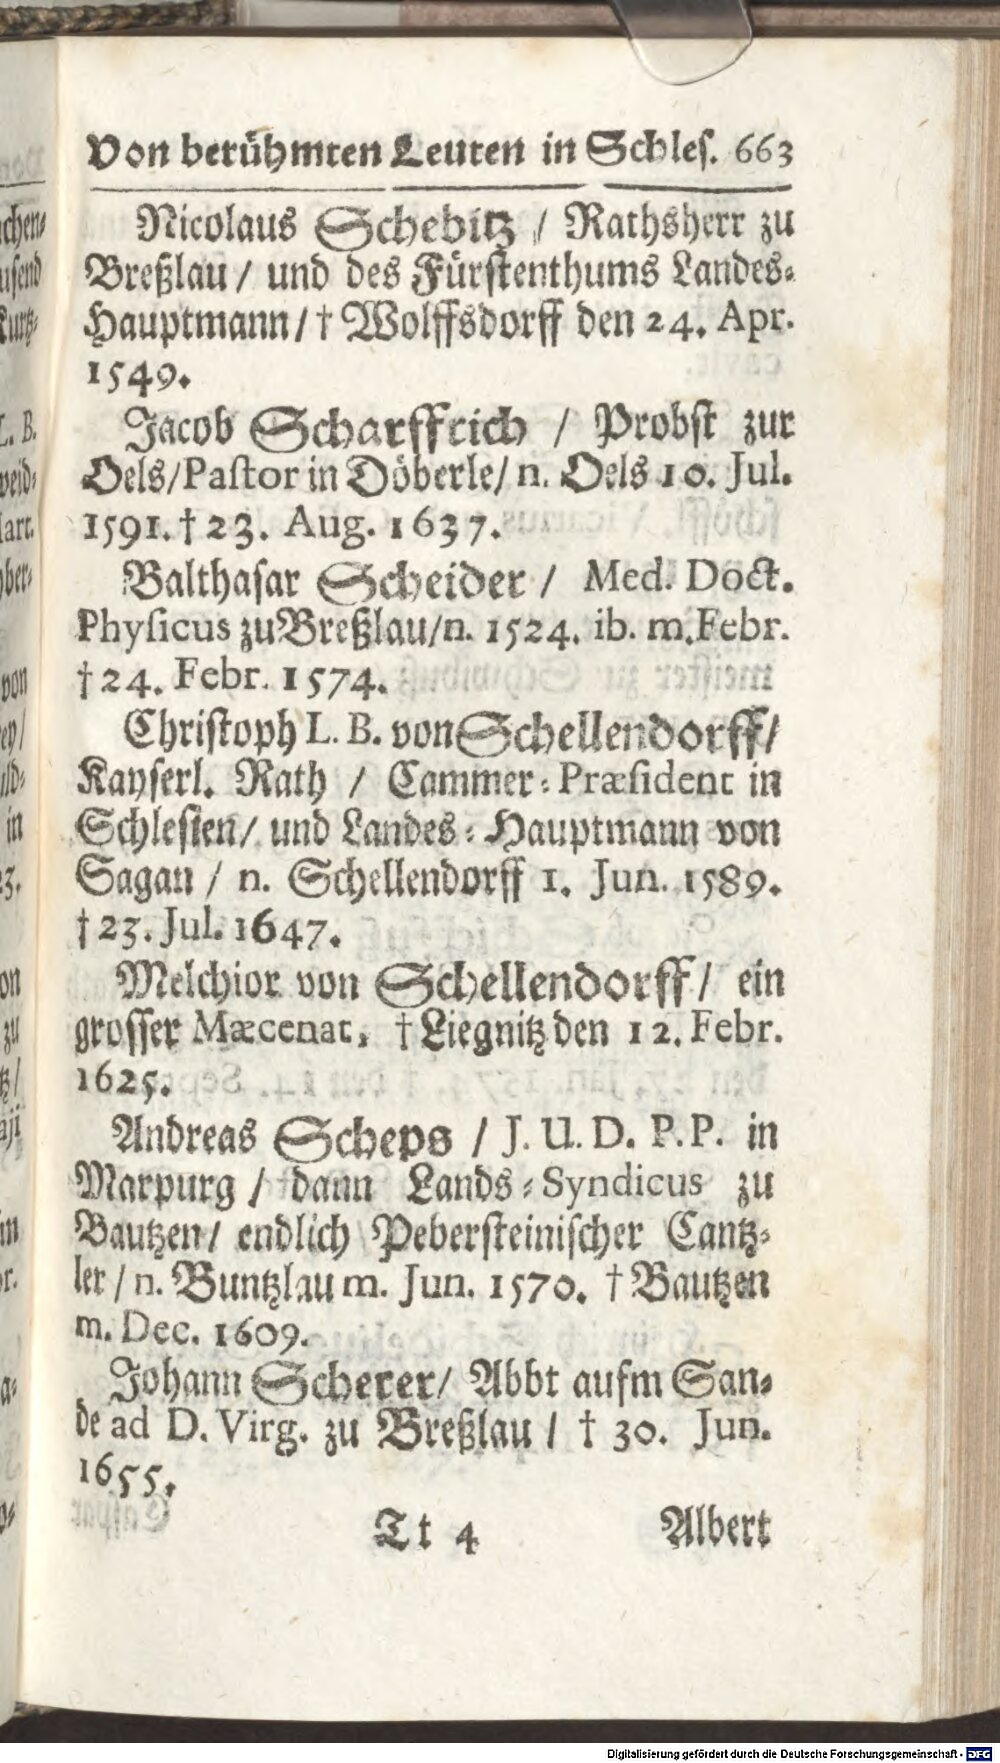 Von berühmten Leuten in Schles. 663
Nicolaus Schebitz / Rathsherr zu
Breßlau / und des Fürstenthums Landes-
Hauptmann / † Wolffsdorff den 24. Apr.
1549.
Jacob Scharffrich / Probst zur
Oels / Pastor in Döberle / n. Oels 10. Jul.
1591. † 23. Aug. 1637.
Balthasar Scheider / Med. Doct.
Physicus zu Breßlau / n. 1524. ib. m. Febr.
† 24. Febr. 1574.
Christoph L. B. von Schellendorff /
Kayserl. Rath / Cammer-Præsident in
Schlesien / und Landes-Hauptmann von
Sagan / n. Schellendorff 1. Jun. 1589.
† 23. Jul. 1647.
Melchior von Schellendorff / ein
grosser Mæcenat, † Liegnitz den 12. Febr.
1625.
Andreas Scheps / J. U. D. P. P. in
Marpurg / dann Lands-Syndicus zu
Bautzen / endlich Pebersteinischer Cantz-
ler / n. Buntzlau m. Jun. 1570. † Bautzen
m. Dec. 1609.
Johann Scherer / Abbt aufm San-
de ad D. Virg. zu Breßlau / † 30. Jun.
1655.
Tt 4 Albert
Digitalisierung gefördert durch die Deutsche Forschungsgemeinschaft - DFG